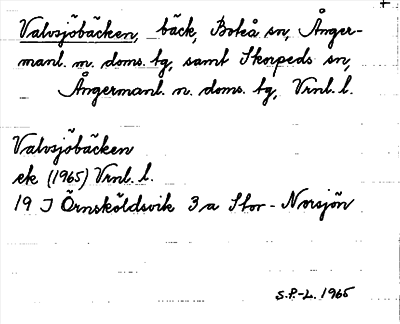 Valvsjöbäcken, bäck, Boteå sn, Ånger-
manl. m. doms. tg, samt Skorpeds sn,
Ångermanl. n. doms. tg, Vrnl. l.
Valvsjöbäcken
ek (1965) Vrnl. l.
19 J Örnsköldsvik 3 a Stor-Norsjön
S.P.-L. 1965